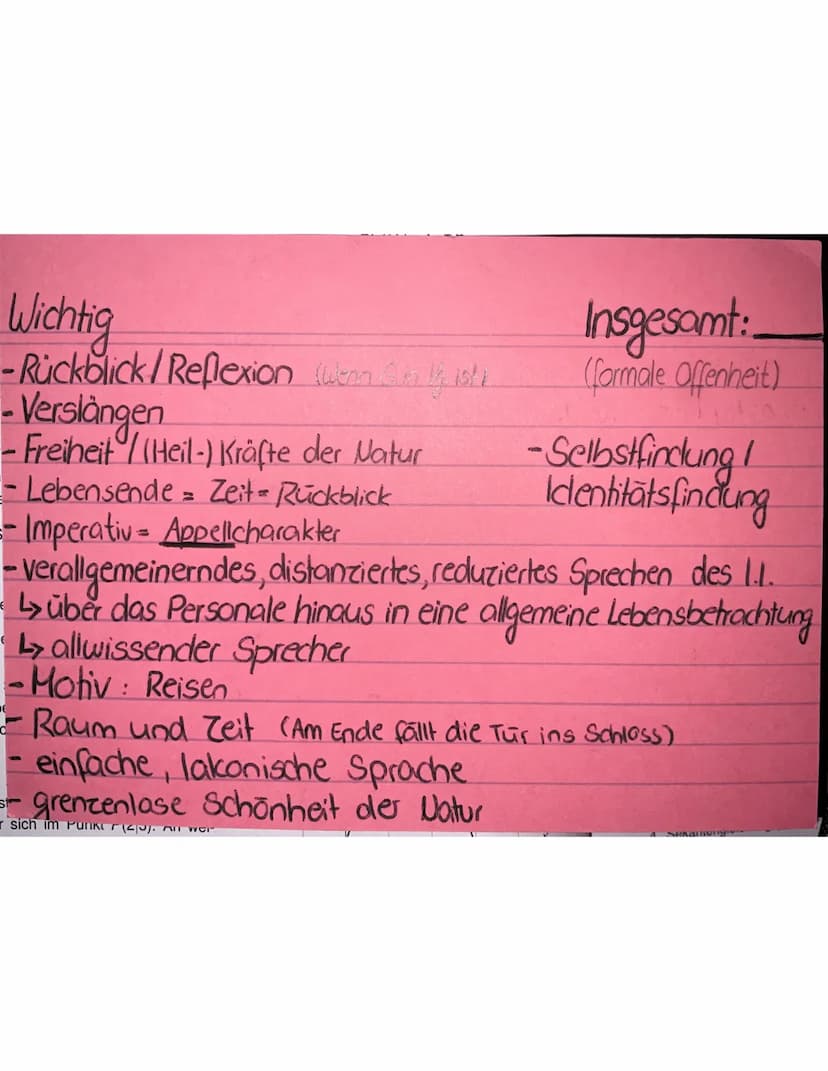 Wichtig
Insgesamt:
- Rückblick / Reflexion (Wenn
(formale Offenheit)
- Verslängen
- Freiheit / (Heil-) Kräfte der Natur
- Selbstfindung /
Identitätsfindung
- Lebensende = Zeit = Rückblick
- Imperativ = Appellcharakter
- verallgemeinerndes, distanziertes, reduziertes Sprechen des l.I.
↳ über das Personale hinaus in eine allgemeine Lebensbetrachtung
↳ allwissender Sprecher
- Motiv : Reisen
- Raum und Zeit (Am Ende fällt die Tür ins Schloss)
- einfache, lakonische Sprache
- grenzenlose Schönheit der Natur
r sich im Punkt P(2|5). An wei-